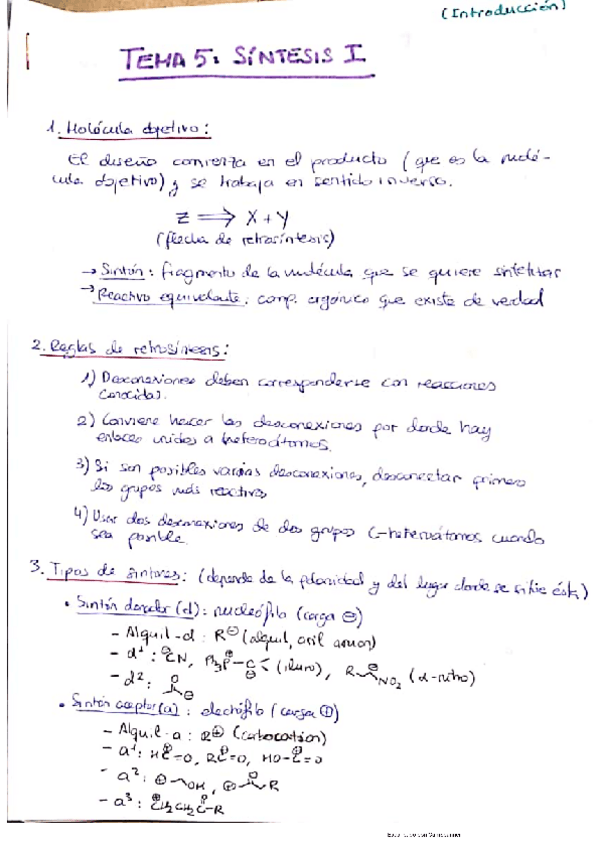 (Introducción)
TEMA 5: SÍNTESIS I
1. Molécula objetivo:
El diseño comienza en el producto (que es la molé-
cula objetivo) y se trabaja en sentido inverso.
Z ⟹ X + Y
(flecha de retrosíntesis)
→ Sintón: fragmento de la molécula que se quiere sintetizar
→ Reactivo equivalente: comp. orgánico que existe de verdad
2. Reglas de retrosíntesis:
1) Desconexiones deben corresponderse con reacciones
conocidas.
2) Conviene hacer las desconexiones por donde hay
enlaces unidos a heteroátomos.
3) Si son posibles varias desconexiones, desconectar primero
los grupos más reactivos
4) Usar dos desconexiones de dos grupos C-heteroátomos cuando
sea posible.
3. Tipos de sintones: (depende de la polaridad y del lugar donde se sitúe ésta)
• Sintón donador (d): nucleófilo (carga ⊖)
- Alquil-d: R⊖ (alquil, aril)
- d¹: ⊖CN, Ph₃P⊕-C⊖ (iluro), R NO₂ (α-nitro)
- d²: O ⊖
• Sintón aceptor (a): electrófilo (carga ⊕)
- Alquil-a: R⊕ (carbocatión)
- a¹: HC⊕=O, RC⊕=O, HO-C⊕=O
- a²: ⊕ OH, ⊕ O R
- a³: ⊕CH₂CH₂C-R O